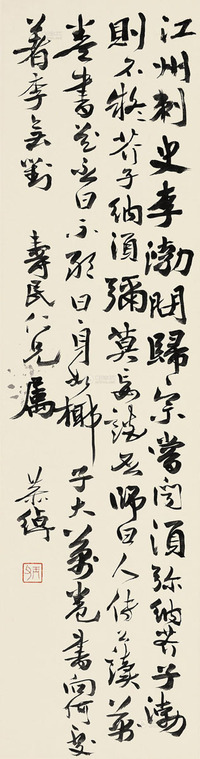 江州刺史李渤問歸宗嘗聞須弥納芥子渤
則不疑芥子納須彌莫妄談否師曰人傳公讀萬
卷書是否曰曰身如椰子大萬卷書向何處
著李無對 壽民仁兄 属 恭綽